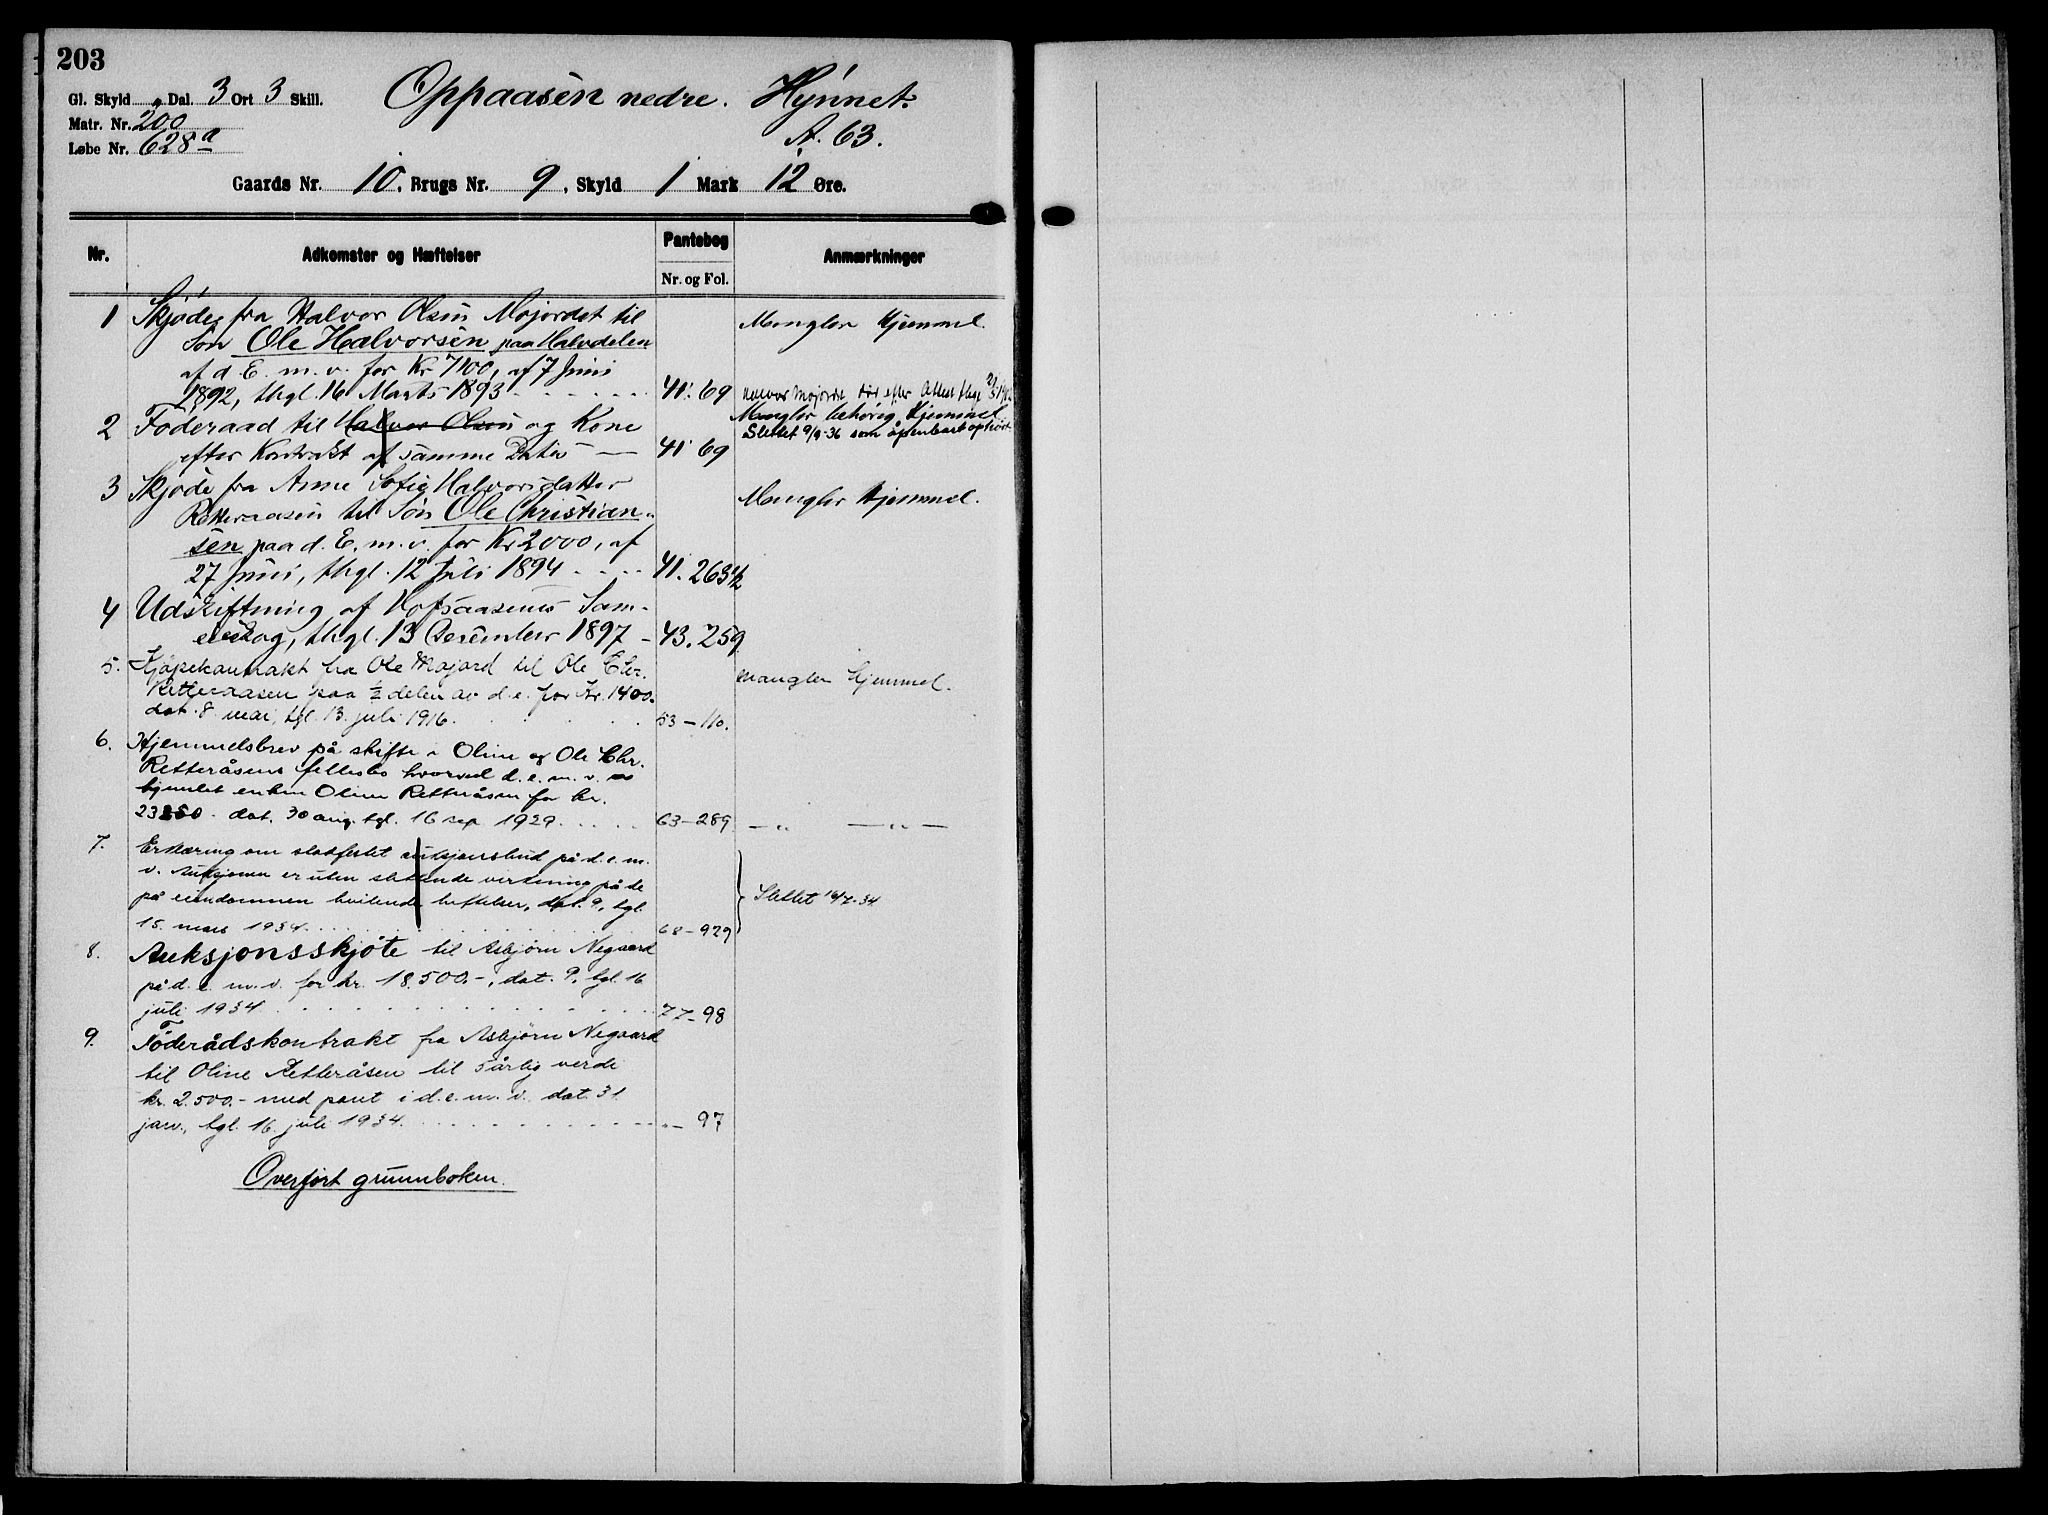 203
Gl. Skyld 2 Dal. 3 Ort 3 Skill. Oppaasen nedre. Hynnet.
Matr. Nr. 200 A. 63.
Løbe Nr. 628a
Gaards Nr. 10. Brugs Nr. 9, Skyld 1 Mark 12 Øre.
Nr. Adkomster og Hæftelser Pantebog Nr. og Fol. Anmærkninger
1 Skjøde fra Halvor Olsen Mojordet til Mangler Hjemmel.
Søn Ole Halvorsen paa Halvdelen
af d. E. m. v. for Kr 7100, af 7 Juni
1892, thgl. 16 Marts 1893 41: 69 Halvor Mojordet død efter Attest
2 Föderaad til Halvor Olsen og Kone Mangler behörig Hjemmel
efter Kontrakt af samme Datis 41 69 Slettet 9/9-36 som åpenbart ophört.
3 Skjøde fra Anne Sofie Halvorsdatter Mangler Hjemmel.
Retteraasen til Søn Ole Christian-
sen paa d. E. m. v. for Kr 2000, af
27 Juni, thgl. 12 Juli 1894 41. 263 1/2
4 Udskiftning af Hofsaasenes Sam-
eieskog, thgl. 13 December 1897 - 43. 259
5. Kjöpekontrakt fra Ole Mojord til Ole Chr. mangler hjemmel.
Retteraasen paa 1/2 delen av d. e. for Kr. 1400.
dat. 8. mai, tgl. 13. juli 1916. 53 - 110.
6. Hjemmelsbrev på skifte i Oline og Ole Chr.
Retteråsens fellesbo hvorved d. e. m. v. er
hjemlet enken Oline Retteråsen for kr.
23850 - dat. 30 aug. tgl. 16 sep. 1929. 63 - 289 — „ — „ —
7. Erklæring om stadfestet auksjonsbud på d. e. m.
v. Auksjonen er uten slettende virkning på de
på eiendommen hvilende heftelser, dat. 9, tgl. Slettet 16/7-34
15. mars 1934. 68 - 929
8. Auksjonsskjöte til Asbjörn Negaard
på d. e. m. v. for kr. 18.500.-, dat. 9, tgl. 16
juli 1934 77 - 98
9. Föderådskontrakt fra Asbjörn Negaard
til Oline Retteråsen til 5årlig verdi
kr. 2.500.- med pant i d. e. m. v. dat. 31
jan., tgl. 16. juli 1934. „ - 97
Overfört grunnboken.